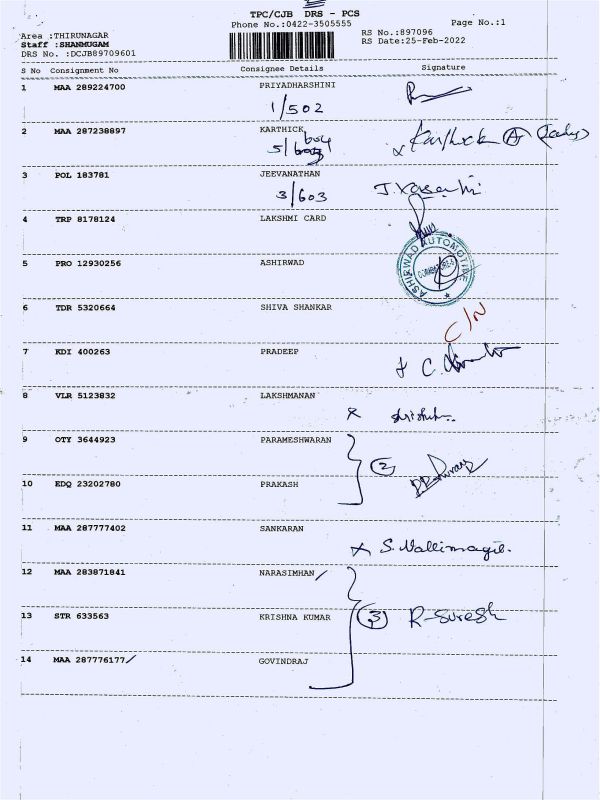 TPC/CJB DRS - PCS
Phone No.:0422-3505555
Page No.:1
Area :THIRUNAGAR
Staff :SHANMUGAM
DRS No. :DCJB89709601
RS No.:897096
RS Date:25-Feb-2022
S No Consignment No Consignee Details Signature
1 MAA 289224700 PRIYADHARSHINI
1/502
2 MAA 287238897 KARTHICK
5/
Karthick
3 POL 183781 JEEVANATHAN
3/603
4 TRP 8178124 LAKSHMI CARD
5 PRO 12930256 ASHIRWAD
ASHIRWAD AUTOMOTIVE
6 TDR 5320664 SHIVA SHANKAR
C/N
7 KDI 400263 PRADEEP
8 VLR 5123832 LAKSHMANAN
9 OTY 3644923 PARAMESHWARAN
2
10 EDQ 23202780 PRAKASH
11 MAA 287777402 SANKARAN
12 MAA 283871841 NARASIMHAN
13 STR 633563 KRISHNA KUMAR 3 R-Suresh
14 MAA 287776177 GOVINDRAJ